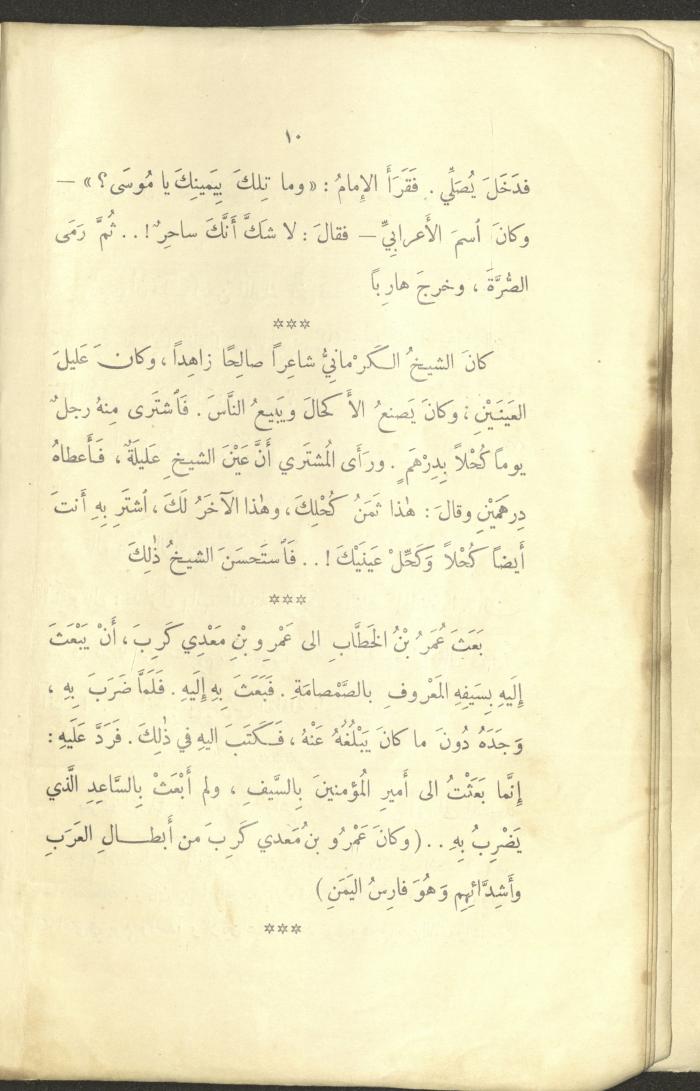 ١٠
فدَخَلَ يُصَلِّي . فَقَرَأَ الإِمامُ : «وما تِلكَ بِيَمينِكَ يا مُوسَى ؟» —
وكانَ ٱسمَ الأَعرابِيِّ — فقالَ : لا شكَّ أَنَّكَ ساحِرٌ ! . . ثُمَّ رَمَى
الصُّرَّةَ ، وخرجَ هارِباً
***
كانَ الشيخُ الكَرْمانِيُّ شاعِراً صالِحًا زاهِداً ، وكان عَليلَ
العَينَيْنِ ؛ وكانَ يَصنعُ الأَكحالَ ويَبيعُ النَّاسَ . فَٱشتَرى مِنهُ رجلٌ
يوماً كُحْلاً بِدِرْهَمٍ . ورَأَى المُشتَري أَنَّ عَيْنَ الشيخِ عَليلَةٌ ، فَأَعطاهُ
دِرهَمَيْنِ وقالَ : هٰذا ثَمَنُ كُحْلِكَ ، وهٰذا الآخَرُ لَكَ ، ٱشتَرِ بِهِ أَنتَ
أَيضاً كُحْلاً وَكَحِّلْ عَينَيْكَ ! . . فَٱستَحسَنَ الشيخُ ذٰلِكَ
***
بَعَثَ عُمَرُ بْنُ الخَطَّابِ الى عَمْرِو بْنِ مَعْدِي كَرِبَ ، أَنْ يَبْعَثَ
إِلَيهِ بِسَيفِهِ المَعْروفِ بالصَّمْصامَةِ . فَبَعَثَ بِهِ إِلَيهِ . فَلَمَّا ضَرَبَ بِهِ ،
وَجَدَهُ دُونَ ما كانَ يَبْلُغُهُ عَنْهُ ، فَكَتَبَ اليهِ في ذٰلِكَ . فَرَدَّ عَلَيهِ :
إِنَّما بَعَثْتُ الى أَميرِ المُؤمنينَ بِالسَّيفِ ، ولم أَبْعَثْ بِالسَّاعِدِ الَّذي
يَضْرِبُ بِهِ . . (وكانَ عَمْرُو بنُ مَعدي كَرِبَ من أَبطالِ العَرَبِ
وأَشِدَّائِهِم وَهُوَ فارِسُ اليَمَنِ)
***